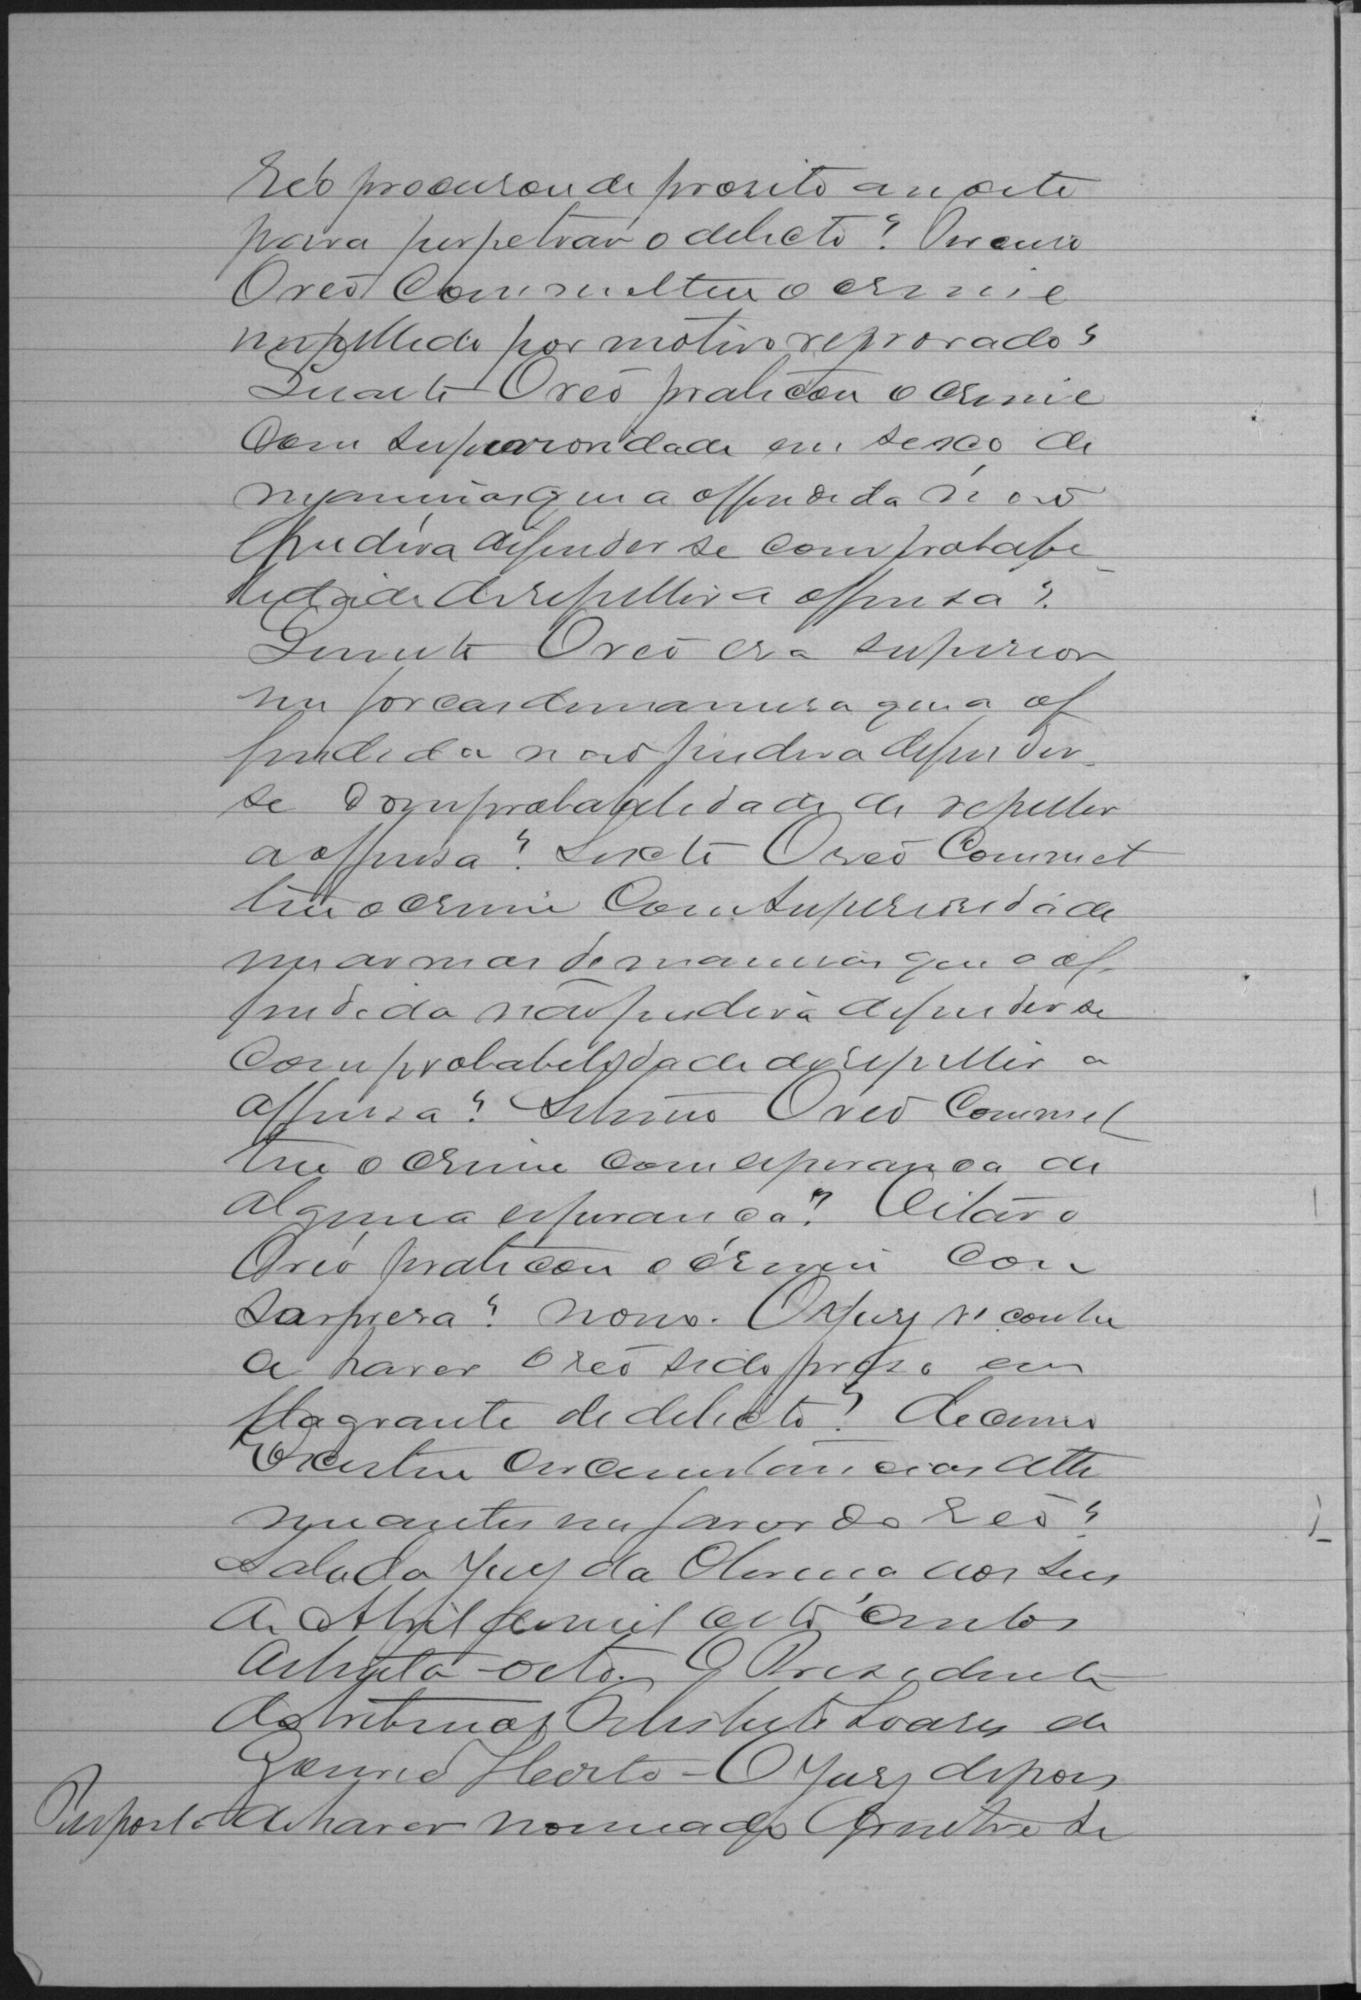 Reó procurou de prosito a noite
para perpetrar o delicto? Terceiro
O reó Commetteu o crime
impellido por motivo reprovado?
Quarto O reó praticou o crime
Com superioridade em sexo de
maneiras que a offendida não
pudéra defender se com probabe
lidade de repellir a offensa?
Quinto O reó era superior
em forcas de maneira que a of
fendida não pudera defender-
se com probabelidade de repellir
a offensa? Sexto O reó Commet
teu o crime Com superioridade
em armas de maneiras que a of-
fendida não pudéra defender se
com probabelidade de repellir a
offensa? Setimo O reó Commet
teu o crime com esperanca de
alguma esperanca? Oitavo
O reó praticou o crime com
sarpresa? nono. O Jury reconhe
ce haver o reó sido preso em
flagrante de delicto? Decimo
Existem circumstancias atte
nuantes em favor do Reó?
Sala do Jury da aos seis
de Abril de mil oito centos
oitenta-octo. O Presidente
do tribunal Soares de
O Jury depois
Resposta de haver nomeado d'entre se